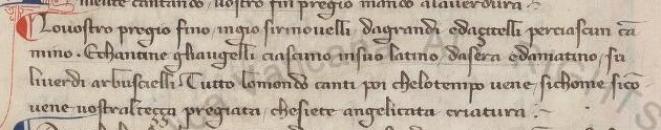 mente cantando, uostro fin pregio mando alauerdura.
Louostro pregio fino, ingio sirinouelli dagrandi edazitelli perciascun ca
mino. Echantine gliaugelli ciascuno insuo latino dasera edamatino, su
liuerdi arbuscielli. Tutto lomondo canti poi chelotempo uene, sichome sico
uene uostraltezza pregiata, chesiete angelicata criatura.